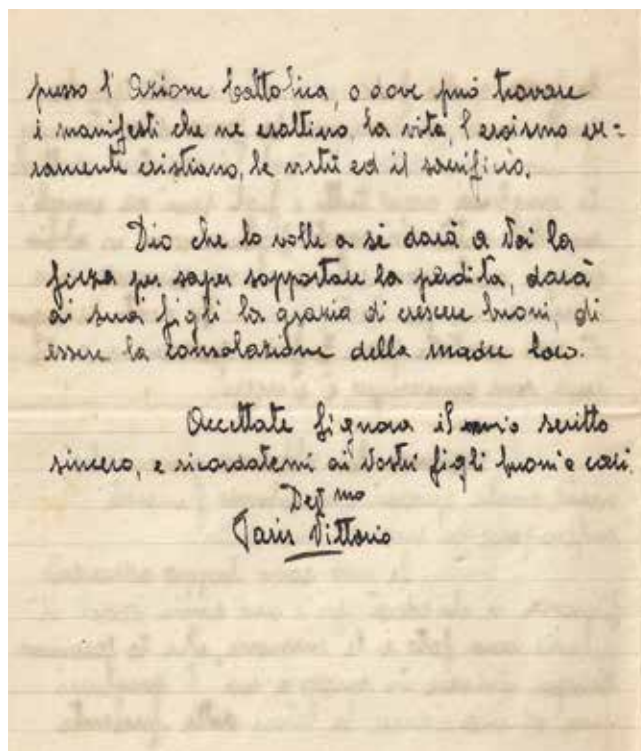 presso l'Azione Cattolica, o dove può trovare
i manifesti che ne esaltino, la vita, l'eroismo ve=
ramente cristiano, le virtù ed il sacrificio.
Dio che lo volle a sé darà a Voi la
forza per saper sopportare la perdita, darà
ai suoi figli la grazia di crescere buoni, di
essere la consolazione della madre loro.
Accettate Signora il mio scritto
sincero, e ricordatemi ai Vostri figli buoni e cari.
Dev mo
Paris Vittorio